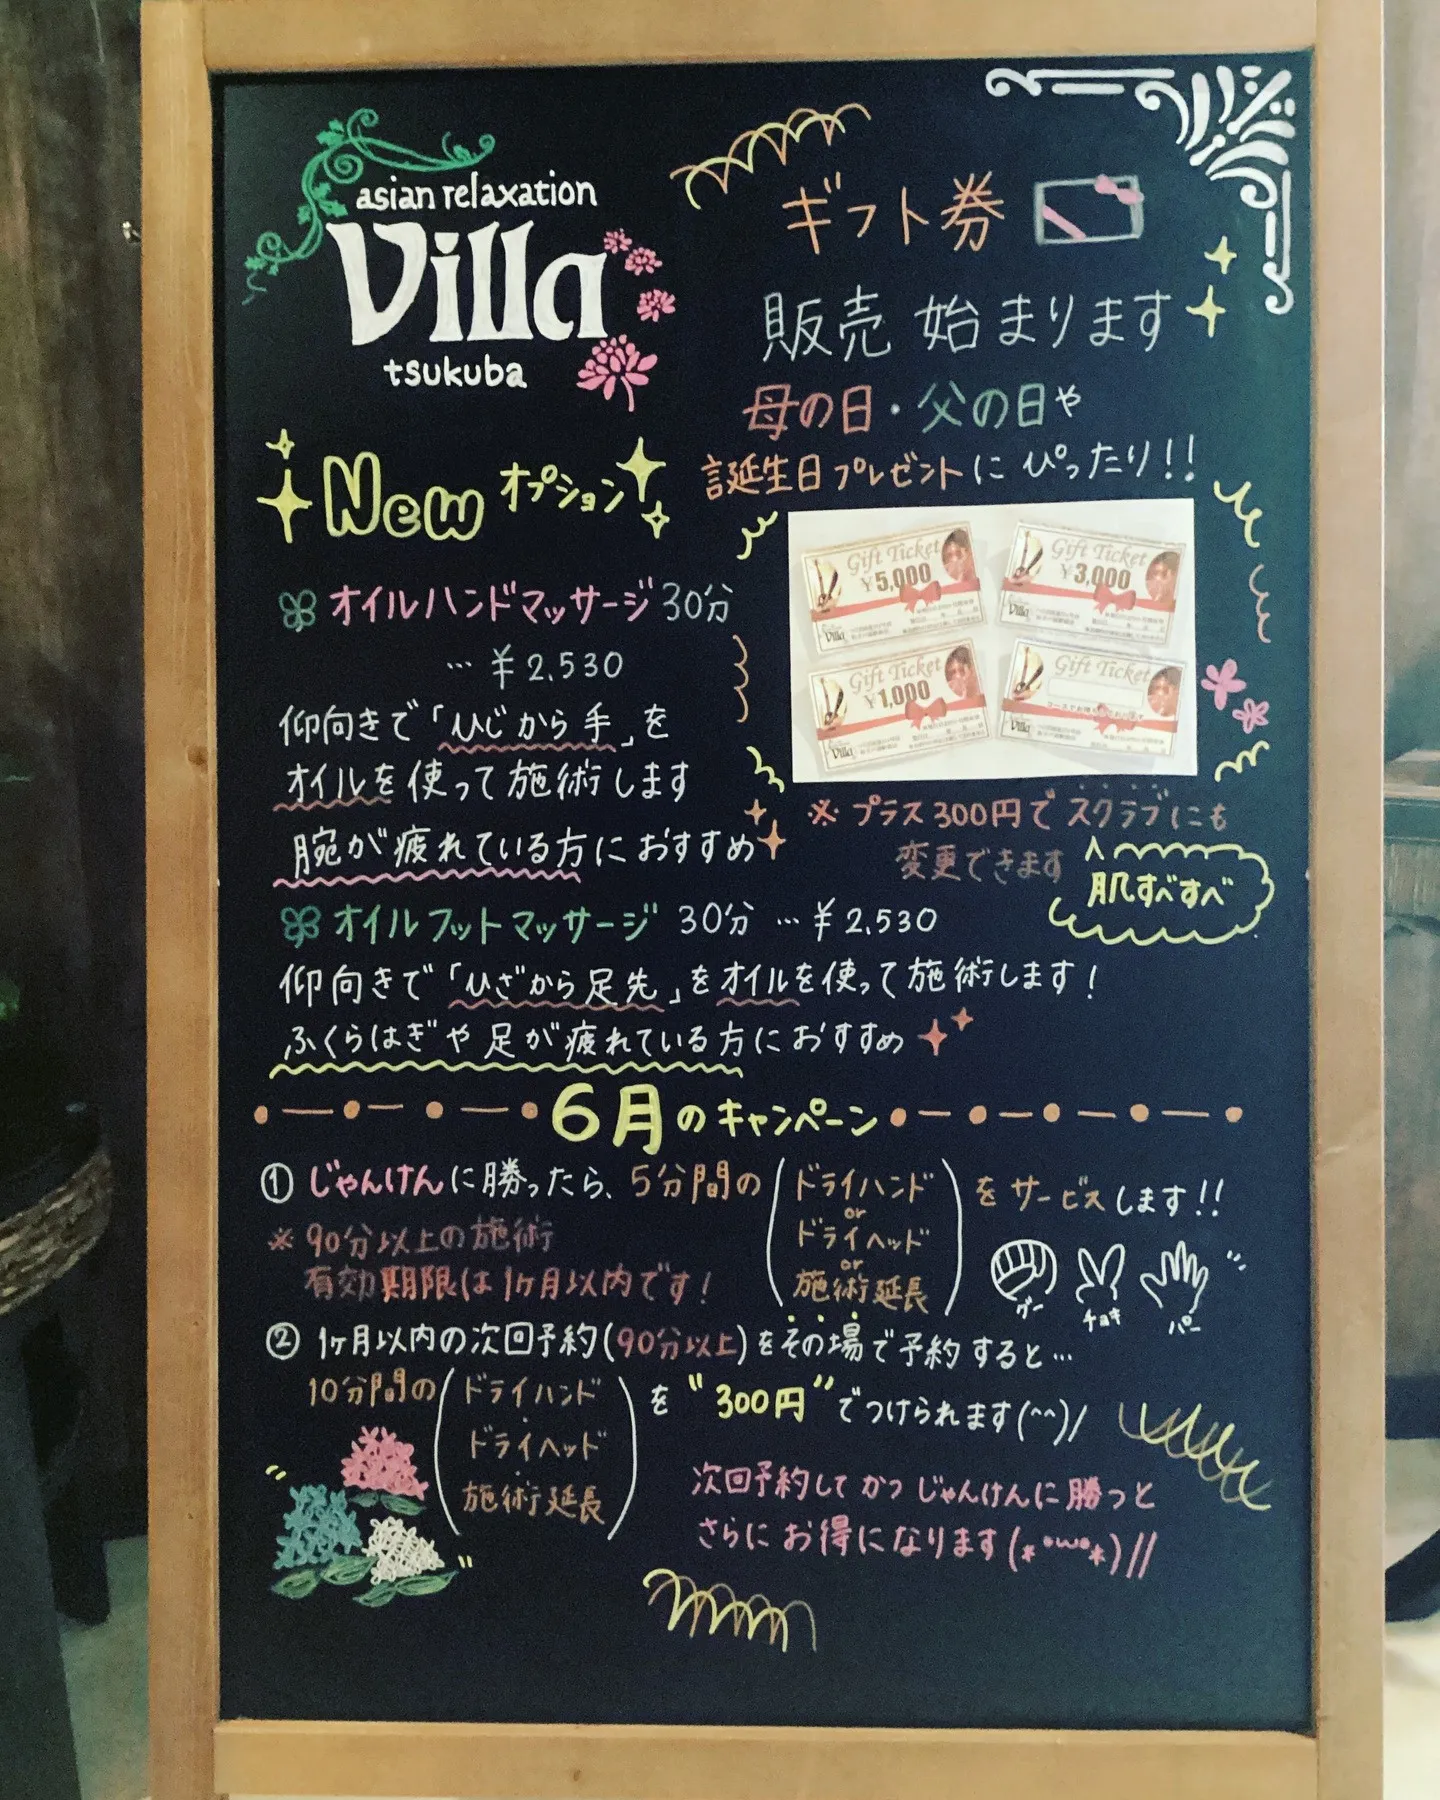 asian relaxation
Villa
tsukuba
ギフト券
販売 始まります
母の日・父の日や
誕生日プレゼントに ぴったり!!
Gift Ticket
¥5,000
Villa
Gift Ticket
¥3,000
Villa
Gift Ticket
¥1,000
Villa
Gift Ticket
Villa
New オプション
オイルハンドマッサージ 30分
… ¥2,530
仰向きで「ひじから手」を
オイルを使って施術します
腕が疲れている方におすすめ
※ プラス300円でスクラブにも
変更できます
肌すべすべ
オイルフットマッサージ 30分 … ¥2,530
仰向きで「ひざから足先」をオイルを使って施術します!
ふくらはぎや足が疲れている方におすすめ
6月のキャンペーン
① じゃんけんに勝ったら、5分間の(ドライハンド
or
ドライヘッド
or
施術延長)をサービスします!!
※ 90分以上の施術
有効期限は1ヶ月以内です!
グー
チョキ
パー
② 1ヶ月以内の次回予約(90分以上)をその場で予約すると…
10分間の(ドライハンド
・
ドライヘッド
・
施術延長)を "300円" でつけられます(^^)/
次回予約して かつ じゃんけんに勝つと
さらにお得になります(*°ω°*)//